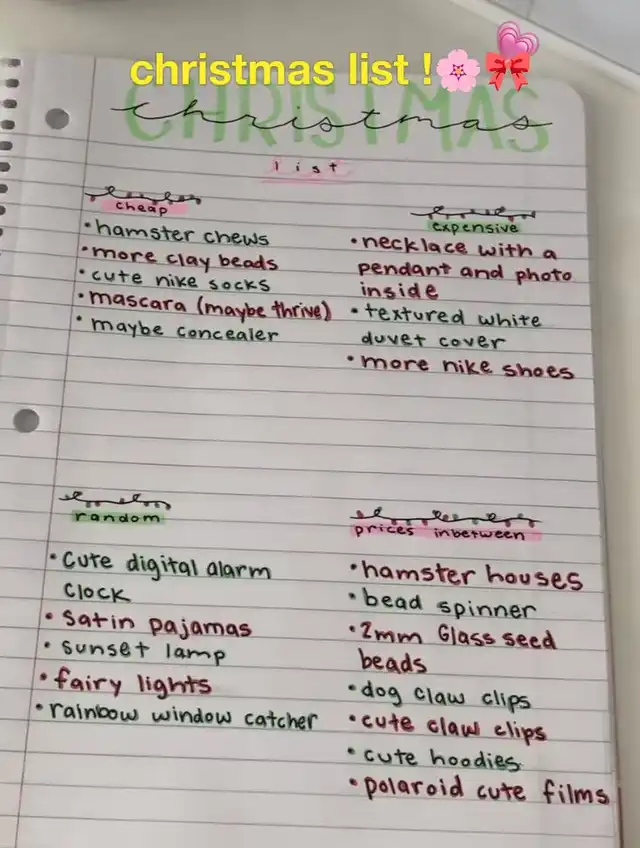 christmas list !🌸🎀💗
CHRISTMAS
christmas
list
cheap
• hamster chews
• more clay beads
• cute nike socks
• mascara (maybe thrive)
• maybe concealer
expensive
• necklace with a
pendant and photo
inside
• textured white
duvet cover
• more nike shoes
random
• cute digital alarm
clock
• satin pajamas
• sunset lamp
• fairy lights
• rainbow window catcher
prices inbetween
• hamster houses
• bead spinner
• 2mm Glass seed
beads
• dog claw clips
• cute claw clips
• cute hoodies
• polaroid cute films